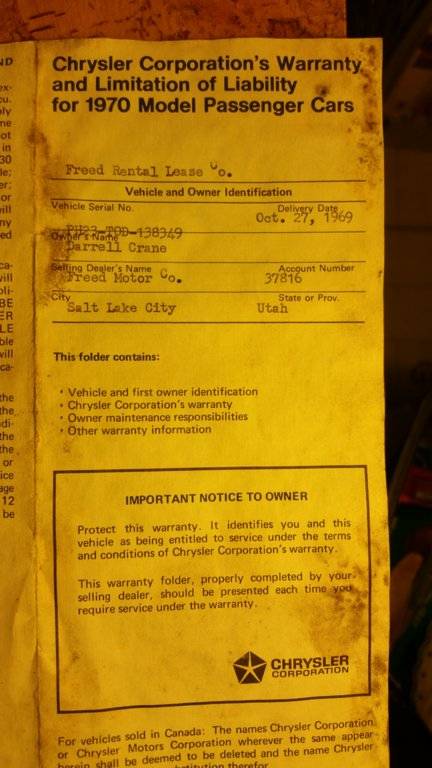 Chrysler Corporation's Warranty
and Limitation of Liability
for 1970 Model Passenger Cars
Freed Rental Lease Co.
Vehicle and Owner Identification
Vehicle Serial No.
Delivery Date
Oct. 27, 1969
138349
Owner's Name
Darrell Crane
Selling Dealer's Name
Account Number
Freed Motor Co.
37816
City
State or Prov.
Salt Lake City
Utah
This folder contains:
• Vehicle and first owner identification
• Chrysler Corporation's warranty
• Owner maintenance responsibilities
• Other warranty information
IMPORTANT NOTICE TO OWNER
Protect this warranty. It identifies you and this
vehicle as being entitled to service under the terms
and conditions of Chrysler Corporation's warranty.
This warranty folder, properly completed by your
selling dealer, should be presented each time you
require service under the warranty.
CHRYSLER
CORPORATION
For vehicles sold in Canada: The names Chrysler Corporation
or Chrysler Motors Corporation wherever the same appear
herein shall be deemed to be deleted and the name Chrysler
therefor